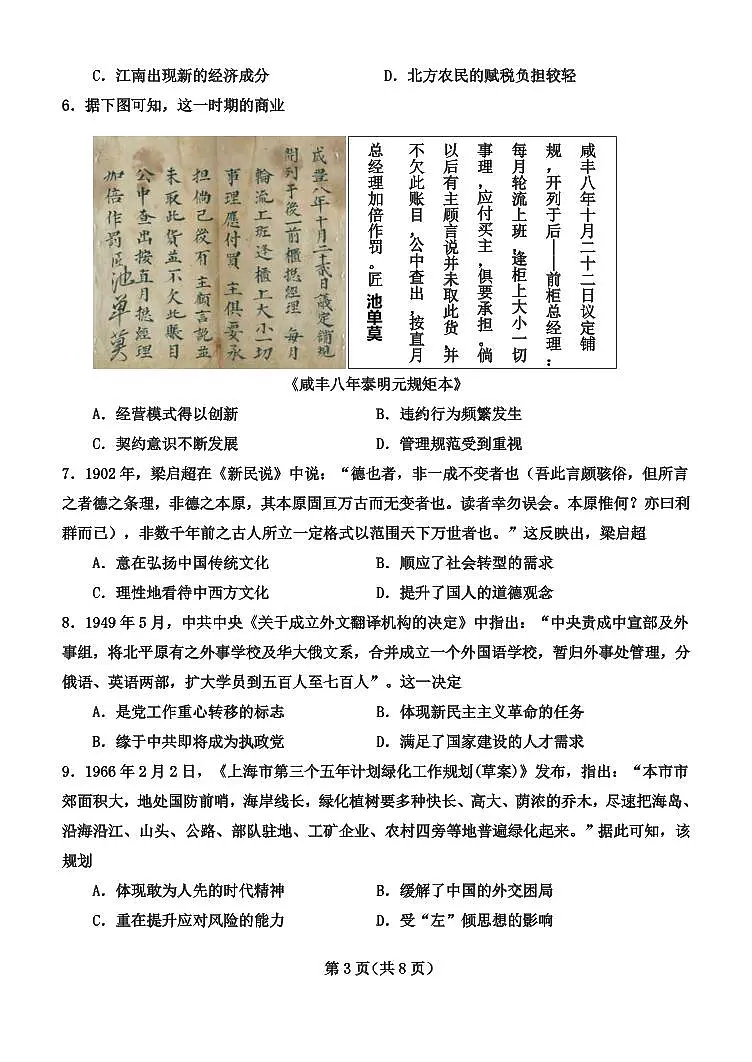 C. 江南出现新的经济成分 D. 北方农民的赋税负担较轻
6. 据下图可知，这一时期的商业
咸丰八年十月二十贰日议定铺规
開列于後一前櫃總經理 每月
輪流上班逢櫃上大小一切
事理應付買 主俱要承
担倘已後有 主顧言說並
未取此貨並不欠此賬目
公中查出按直月總經理
加倍作罰 匠池單莫
咸丰八年十月二十二日议定铺
规，开列于后——前柜总经理：
每月轮流上班，逢柜上大小一切
事理，应付买主，俱要承担。倘
以后有主顾言说并未取此货，并
不欠此账目，公中查出，按直月
总经理加倍作罚。匠 池单莫
《咸丰八年泰明元规矩本》
A. 经营模式得以创新 B. 违约行为频繁发生
C. 契约意识不断发展 D. 管理规范受到重视
7. 1902 年，梁启超在《新民说》中说：“德也者，非一成不变者也（吾此言颇骇俗，但所言
之者德之条理，非德之本原，其本原固亘万古而无变者也。读者幸勿误会。本原惟何？亦曰利
群而已），非数千年前之古人所立一定格式以范围天下万世者也。”这反映出，梁启超
A. 意在弘扬中国传统文化 B. 顺应了社会转型的需求
C. 理性地看待中西方文化 D. 提升了国人的道德观念
8. 1949 年 5 月，中共中央《关于成立外文翻译机构的决定》中指出：“中央责成中宣部及外
事组，将北平原有之外事学校及华大俄文系，合并成立一个外国语学校，暂归外事处管理，分
俄语、英语两部，扩大学员到五百人至七百人”。这一决定
A. 是党工作重心转移的标志 B. 体现新民主主义革命的任务
B. 缘于中共即将成为执政党 D. 满足了国家建设的人才需求
9. 1966 年 2 月 2 日，《上海市第三个五年计划绿化工作规划(草案)》发布，指出：“本市市
郊面积大，地处国防前哨，海岸线长，绿化植树要多种快长、高大、荫浓的乔木，尽速把海岛、
沿海沿江、山头、公路、部队驻地、工矿企业、农村四旁等地普遍绿化起来。”据此可知，该
规划
A. 体现敢为人先的时代精神 B. 缓解了中国的外交困局
C. 重在提升应对风险的能力 D. 受“左”倾思想的影响
第 3 页(共 8 页)